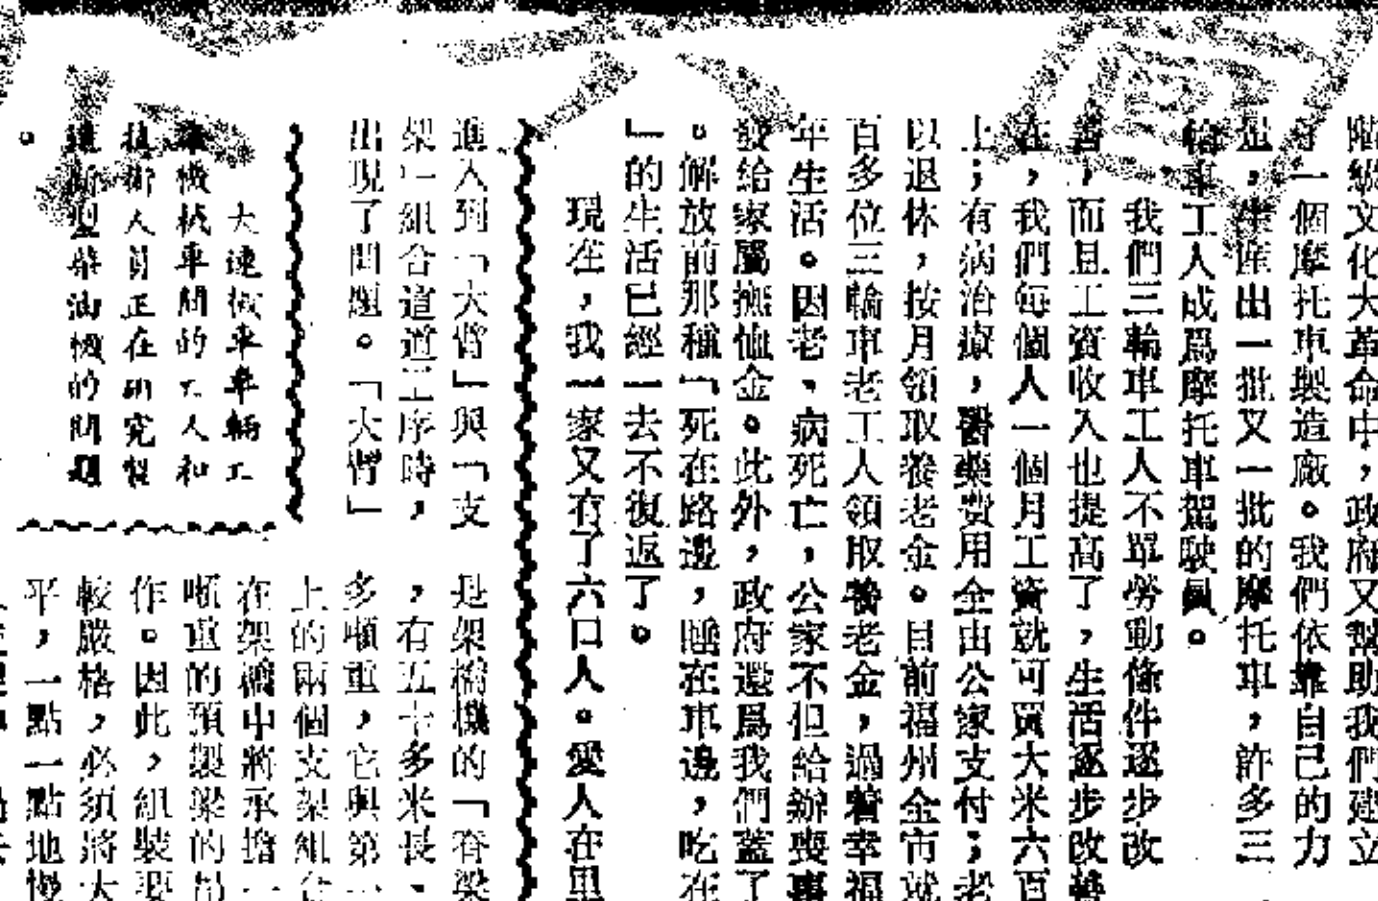 階級文化大革命中，政府又幫助我們建立
了一個摩托車製造廠。我們依靠自己的力
量，生產出一批又一批的摩托車，許多三
輪車工人成爲摩托車駕駛員。
我們三輪車工人不單勞動條件逐步改
善，而且工資收入也提高了，生活逐步改善
在，我們每個人一個月工資就可買大米六百
上；有病治療，醫藥費用全由公家支付；老
以退休，按月領取養老金。目前福州全市就
百多位三輪車老工人領取養老金，過着幸福
年生活。因老、病死亡，公家不但給辦喪事
發給家屬撫恤金。此外，政府還爲我們蓋了
。解放前那種「死在路邊，睡在車邊，吃在
」的生活已經一去不復返了。
現在，我一家又有了六口人。愛人在里
進入到「大臂」與「支
架」組合這道工序時，
出現了問題。「大臂」
大連機車車輛工
廠機械車間的工人和
技術人員正在研究製
造新型柴油機的問題
。
是架橋機的「脊梁
，有五十多米長、
多噸重，它與第一
上的兩個支架組合
在架橋中將承擔一
噸重的預製梁的吊
作。因此，組裝要
較嚴格，必須將大
平，一點一點地慢